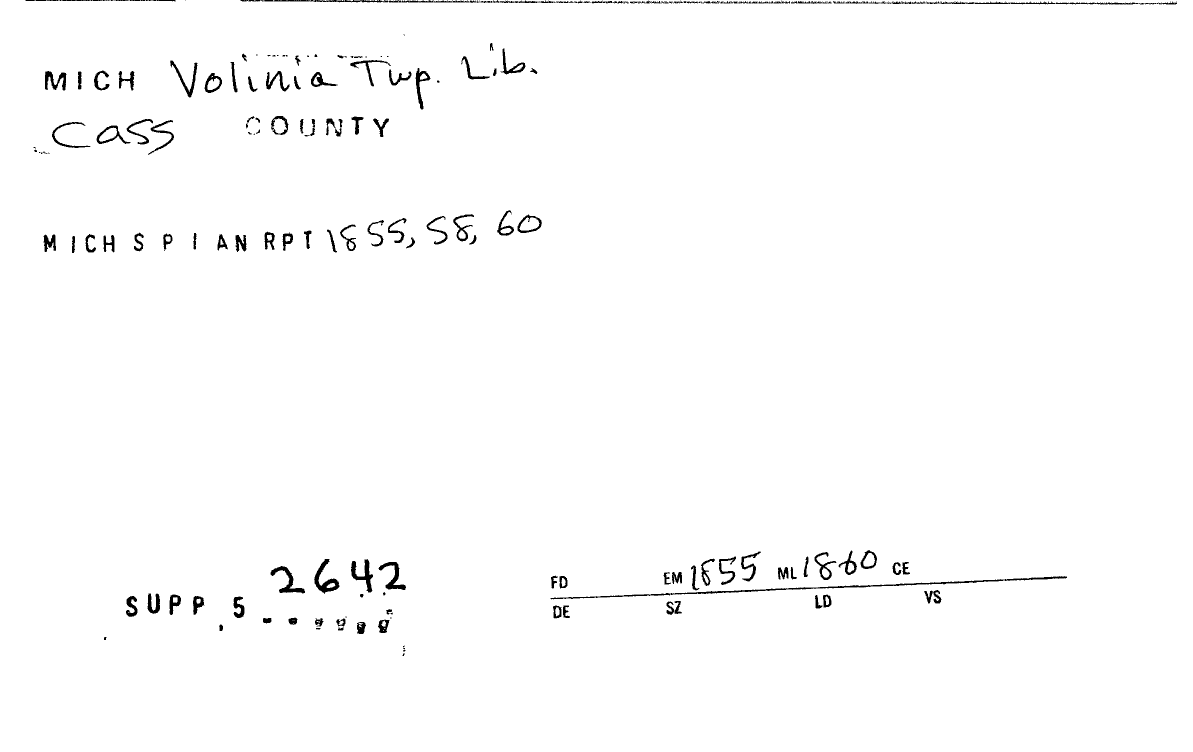 MICH Volinia Twp. Lib.
Cass COUNTY
MICH S P I AN RPT 1855, 58, 60
2642
SUPP 5
FD EM 1855 ML 1860 CE
DE SZ LD VS